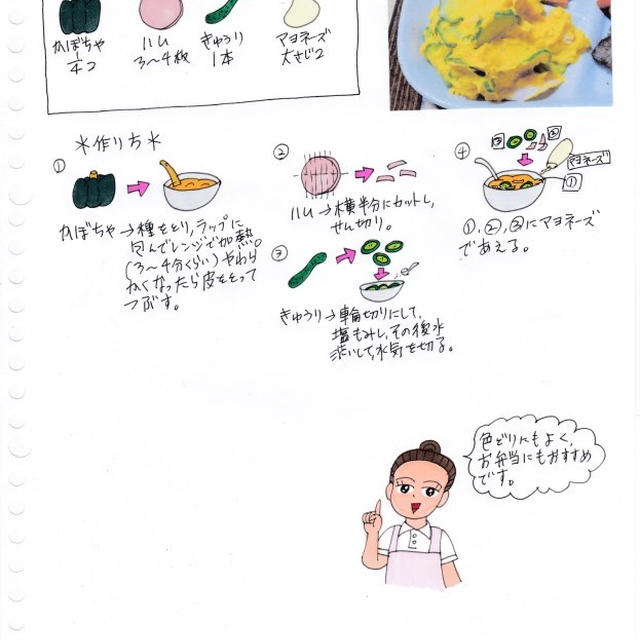 かぼちゃ
1/4コ
ハム
3〜4枚
きゅうり
1本
マヨネーズ
大さじ2
＊作り方＊
①
かぼちゃ→種をとり、ラップに
包んでレンジで加熱。
(3〜4分くらい)やわら
かくなったら皮をとって
つぶす。
②
ハム→横半分にカットし、
せん切り。
③
きゅうり→輪切りにして、
塩もみし、その後水
洗いして、水気を切る。
④
③
②
マヨネーズ
①
①、②、③にマヨネーズ
であえる。
色どりにもよく、
お弁当にもおすすめ
です。